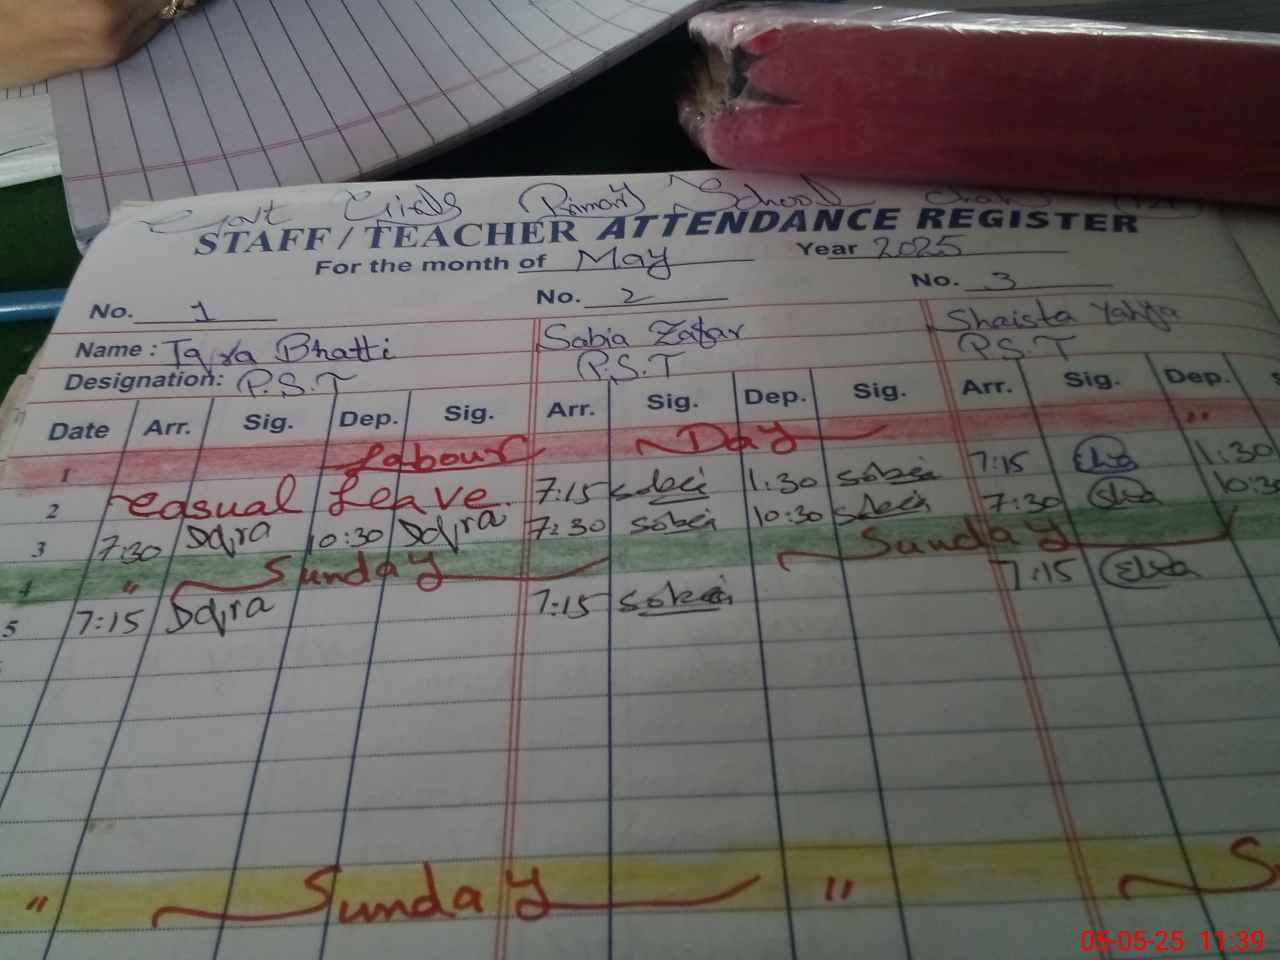 Govt Girls Primary School
STAFF / TEACHER ATTENDANCE REGISTER
For the month of May Year 2025
No. 1 No. 2 No. 3
Name : Iqra Bhatti Sabia Zafar Shaista Yahya
Designation: P.S.T P.S.T P.S.T
Date Arr. Sig. Dep. Sig. Arr. Sig. Dep. Sig. Arr. Sig. Dep.
1 Labour Day "
2 Casual Leave 7:15 1:30 7:15 1:30
3 7:30 Iqra 10:30 Iqra 7:30 10:30 7:30 10:3
4 " Sunday Sunday
5 7:15 Iqra 7:15 7:15
" Sunday " S
05-05-25 11:39